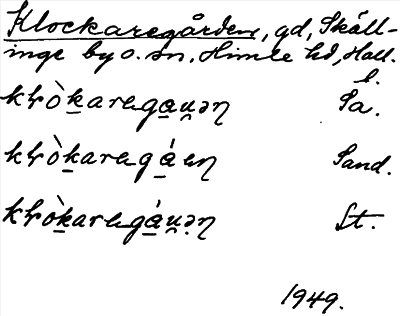 Klockaregården, gd, Skäll-
inge by o. sn, Himle hd, Hall.
l.
kḷò̱karega̱u̯ən Sa.
kḷò̱karegá̱en Sand.
kḷò̱karegá̱u̯ən St.
1949.